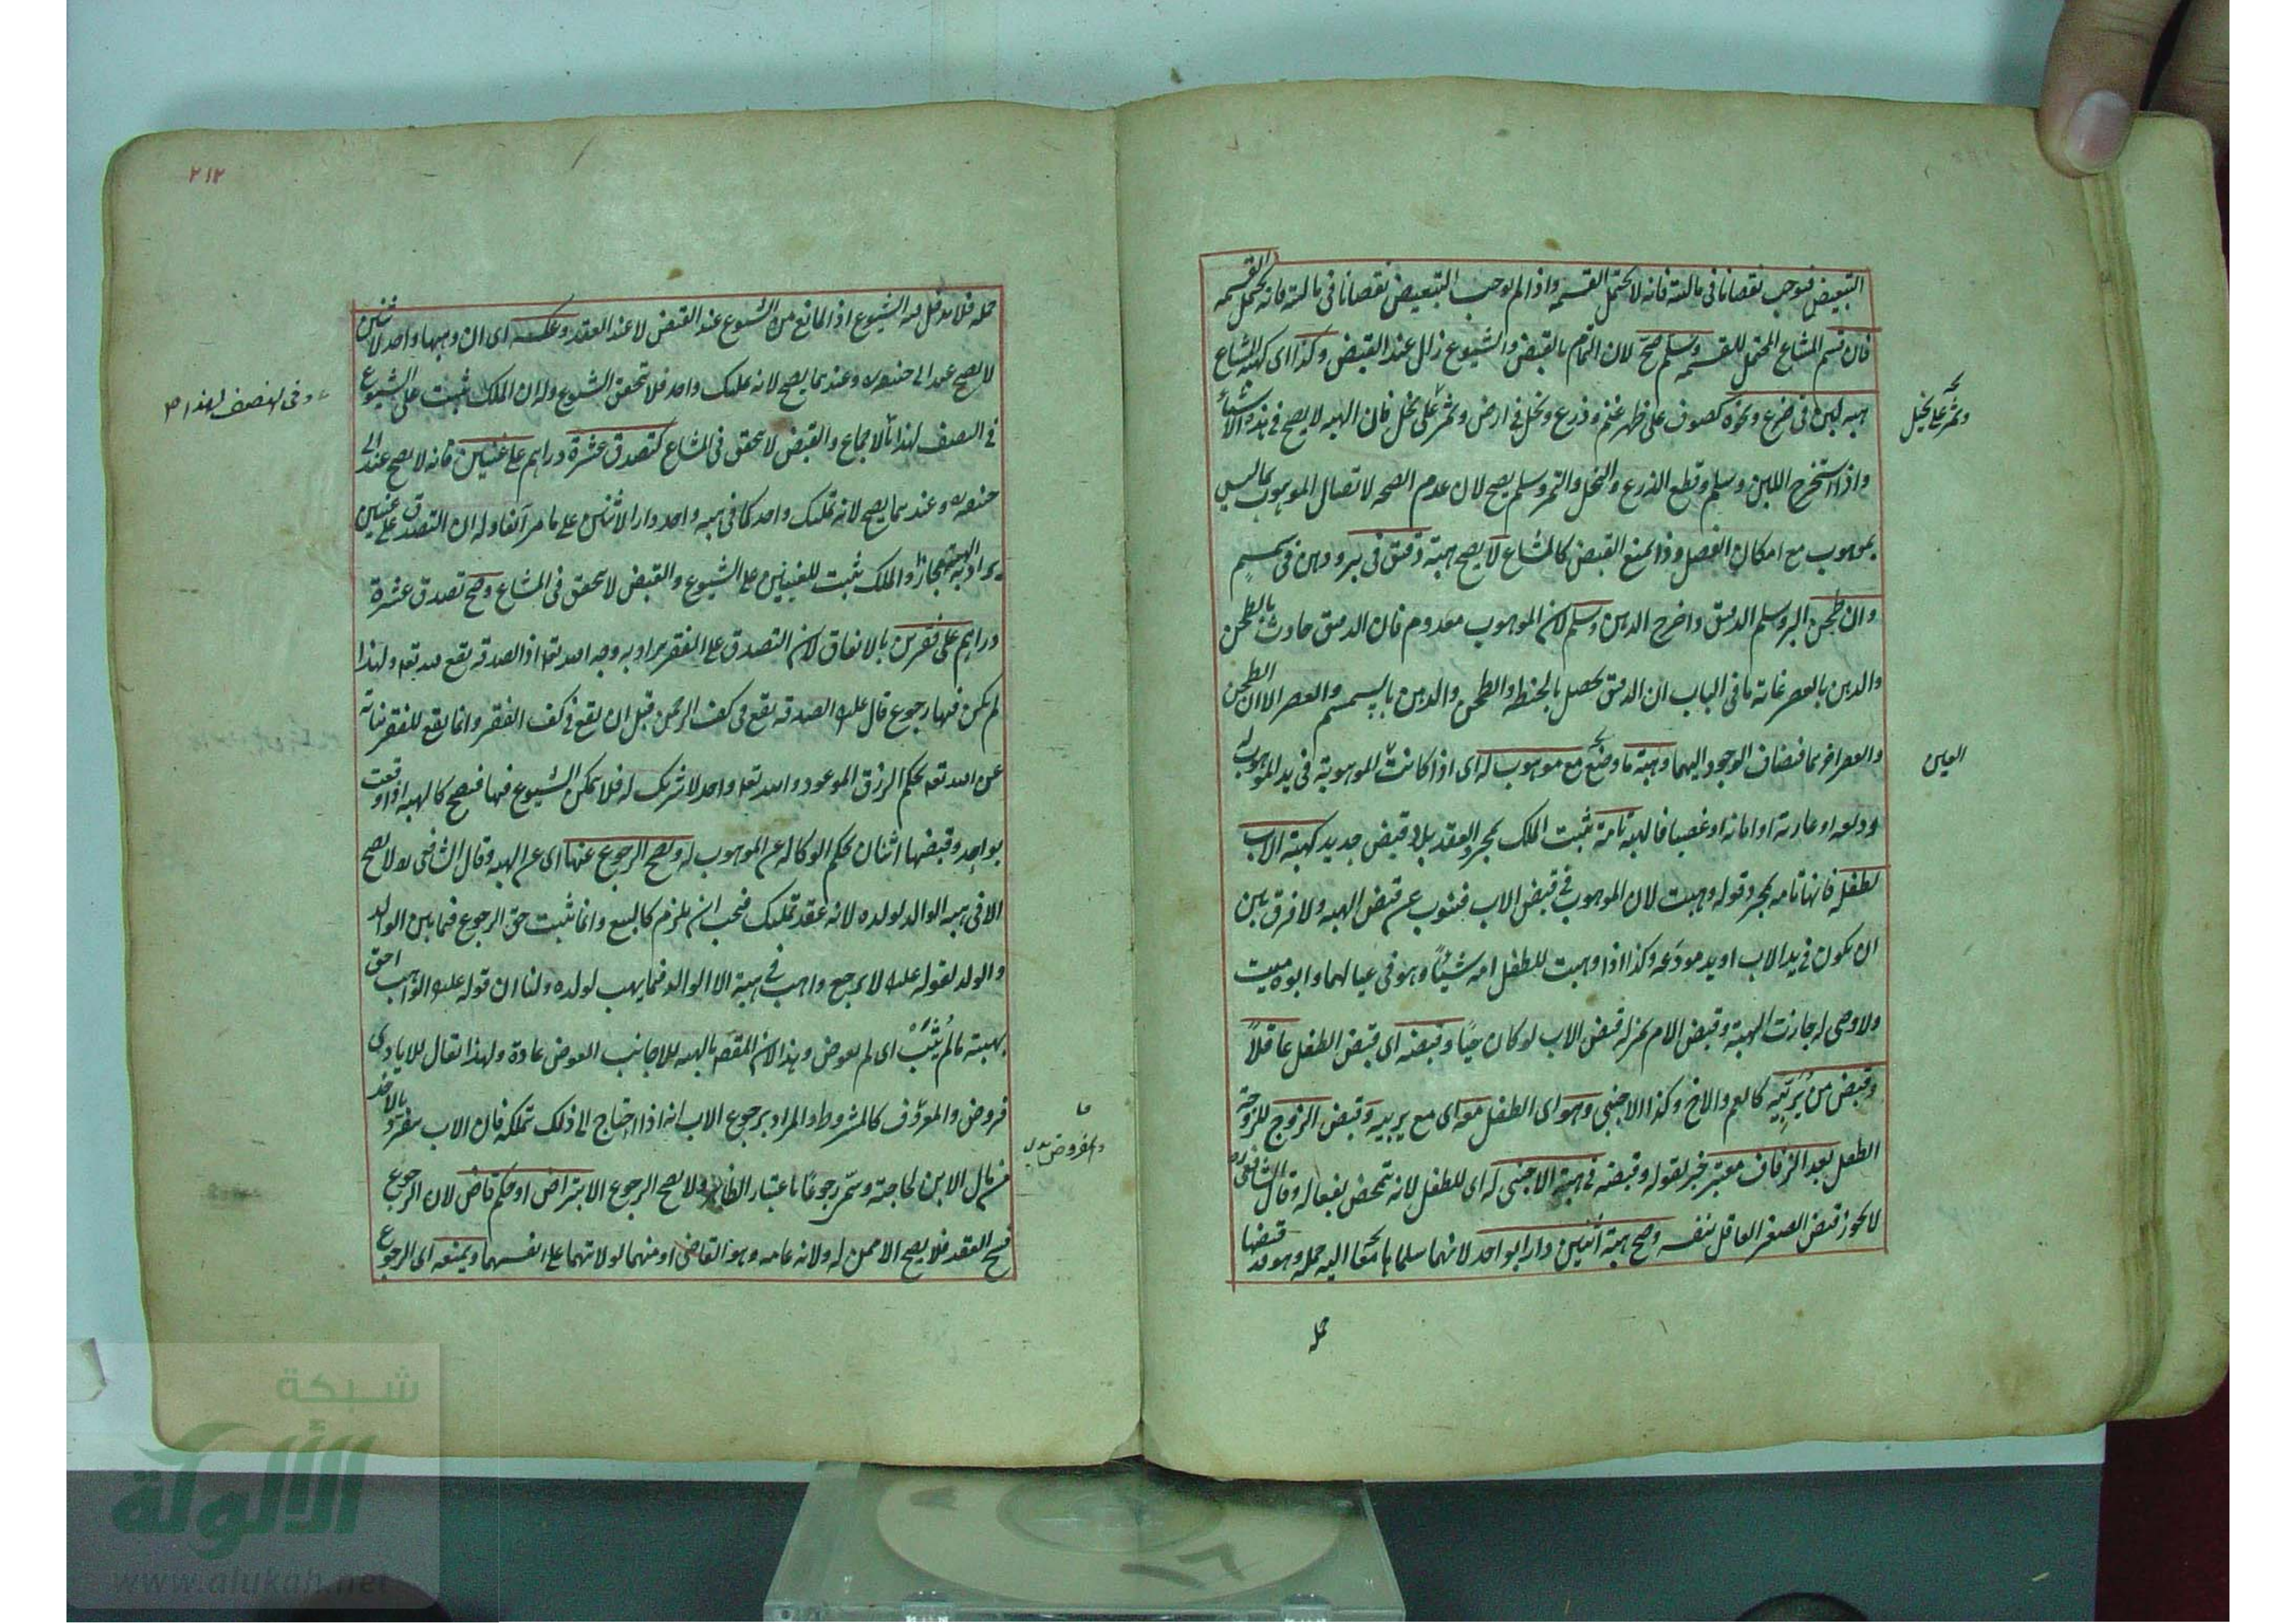 التبعيض فيوجب نقصانا في ماليته فانه لا يحتمل القسمه واذا لم يوجب التبعيض نقصانا في ماليته فانه يحتمل القسمه
فان قسم المشاع المحتمل للقسمه وسلم صح لان التمام بالقبض والشيوع زال عند القبض وكذا اى كهبة المشاع
هبه لبن فى ضرع ونحوه كصوف على ظهر غنم وزرع ونخل فى ارض وثمر على نخل فان الهبه لا يصح فى هذه الاشياء
وتمر على نخل
واذا استخرج اللبن وسلم وقطع الزرع والنخل والتمر وسلم يصح لان عدم الصحه لاتصال الموهوب بما ليس
بموهوب مع امكان الفصل وذا يمنع القبض كالمشاع لا يصح هبة دقيق فى بر ودهن فى سمسم
وان طحن البر وسلم الدقيق واخرج الدهن وسلم لان الموهوب معدوم فان الدقيق حادث بالطحن
والدهن بالعصر غاية ما فى الباب ان الدقيق يحصل بالحنطه والطحن والدهن بالسمسم والعصر الا ان الطحن
والعصر اخرهما فيضاف الوجود اليهما وهبة ما وضع مع موهوب له اى اذا كانت الموهوبة فى يد الموهوب له
العين
وديعه او عارية او امانه او غصبا فالهبة تامة يثبت الملك بمجرد العقد بلا قبض جديد كهبة الاب
لطفله فانها تامه بمجرد قوله وهبت لان الموهوب فى قبض الاب فينوب عن قبض الهبه ولا فرق بين
ان يكون فى يد الاب او يد مودعه وكذا اذا وهبت للطفل امه شيئا وهو فى عيالها وابوه ميت
ولا وصى له جازت الهبة وقبض الام بمنزله قبض الاب لو كان حيًا وقبضه اى قبض الطفل عاقلاً
وقبض من يُربّيه كالعم والاخ وكذا الاجنبى وهو اى الطفل معه اى مع يربيه وقبض الزوج للزوجة
الطفل بعد الزفاف معتبر خبر لقوله وقبضه فى هبة الاجنبى له اى للطفل لانه تمحض نفعا له وقال الشافعى ره
لا يجوز قبض الصغير العاقل بنفسه وصح هبة اثنين دارا لواحد لانهما سلماها معا اليه جمله وهو قد قبضها
جمله
٢١٢
جمله فلا يدخل فيه الشيوع اذ المانع من الشيوع عند القبض لا عند العقد وعكسه اى ان وهبها واحد لاثنين
لا يصح عند ابى حنيفه ره وعندهما يصح لانه تمليك واحد فلا يتحقق الشيوع وله ان الملك يثبت على الشيوع
فى النصف لهذا بالاجماع والقبض لا يتحقق فى المشاع كتصدق عشرة دراهم على غنيين فانه لا يصح عند ابى
وفى النصف لهذا صح
حنيفه ره وعندهما يصح لانه تمليك واحد كما فى هبه واحد دارا لاثنين على ما مر آنفا وله ان التصدق على غنيين
يراد به الهبة مجازا والملك يثبت للغنيين على الشيوع والقبض لا يتحقق فى المشاع وصح تصدق عشرة
دراهم على فقيرين بالاتفاق لان التصدق على الفقير يراد به وجه الله تعه اذ الصدقه يقع لله تعه ولهذا
لم يكن فيها رجوع قال عليه الصدقه يقع فى كف الرحمن قبل ان يقع فى كف الفقير وانما يقع للفقير نيابة
عن الله تعه بحكم الرزق الموعود والله تعه واحد لا شريك له فلا يمكن الشيوع فيها فيصح كالهبه اذا وقعت
بواحد وقبضها اثنان بحكم الوكاله عن الموهوب له ويصح الرجوع عنها اى عن الهبه وقال الشافعى ره لا يصح
الا فى هبه الوالد لولده لانه عقد تمليك فيجب ان يلزم كالبيع وانما يثبت حق الرجوع فيما بين الوالد
والولد لقوله عليه لا يرجع واهب فى هبة الا الوالد فيما يهب لولده ولنا ان قوله عليه الواهب احق
بهبته مالم يُثَبْ اى لم يعوض وهذا لان المقصد بالهبه للاجانب العوض عادة ولهذا يقال للايادى
فروض والمعروف كالمشروط والمراد برجوع الاب انه اذا احتاج الى ذلك تملكه فان الاب ينفرد بالاخذ
من مال الابن لحاجته وسمّى رجوعًا باعتبار الظاهر ولا يصح الرجوع الا بتراض او حكم قاض لان الرجوع
فسخ العقد فلا يصح الا ممن له ولاية عامه وهو القاضى او منهما لولايتهما على انفسهما ويمنعه اى الرجوع
شبكة
الألوكة
www.alukah.net